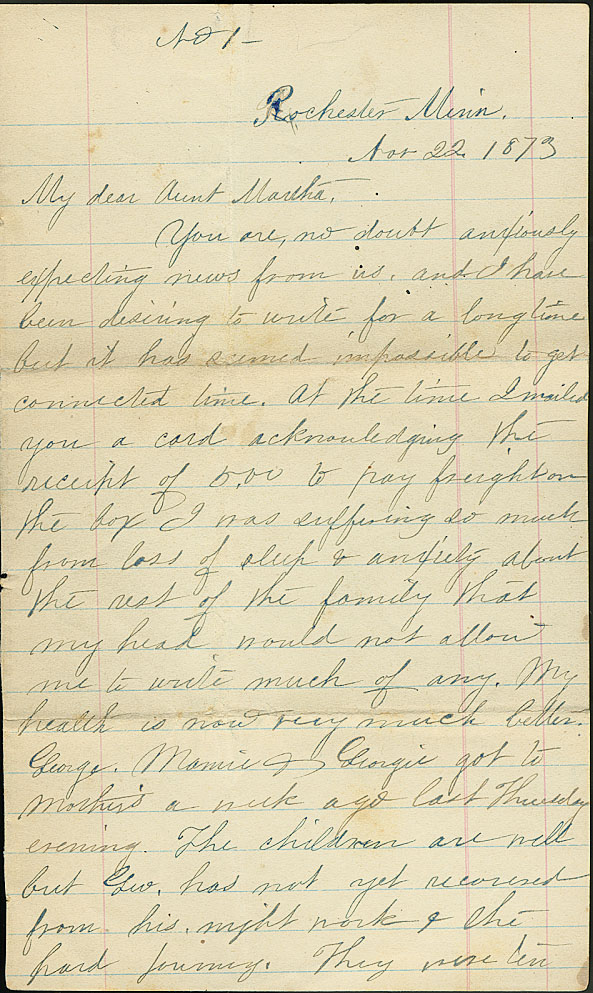 No 1 -
Rochester Minn.
Nov 22. 1873
My dear Aunt Martha,
You are, no doubt anxiously
expecting news from us. and I have
been desiring to write for a long time
but it has seemed impossible to get
connected time. At the time I mailed
you a card acknowledging the
receipt of 5.00 to pay freight on
the box I was suffering so much
from loss of sleep & anxiety about
the rest of the family that
my head would not allow
me to write much of any. My
health is now very much better.
George. Mamie & Georgie got to
Mother's a week ago last Thursday
evening. The children are well
but Geo. has not yet recovered
from his night work & the
hard journey. They were ten